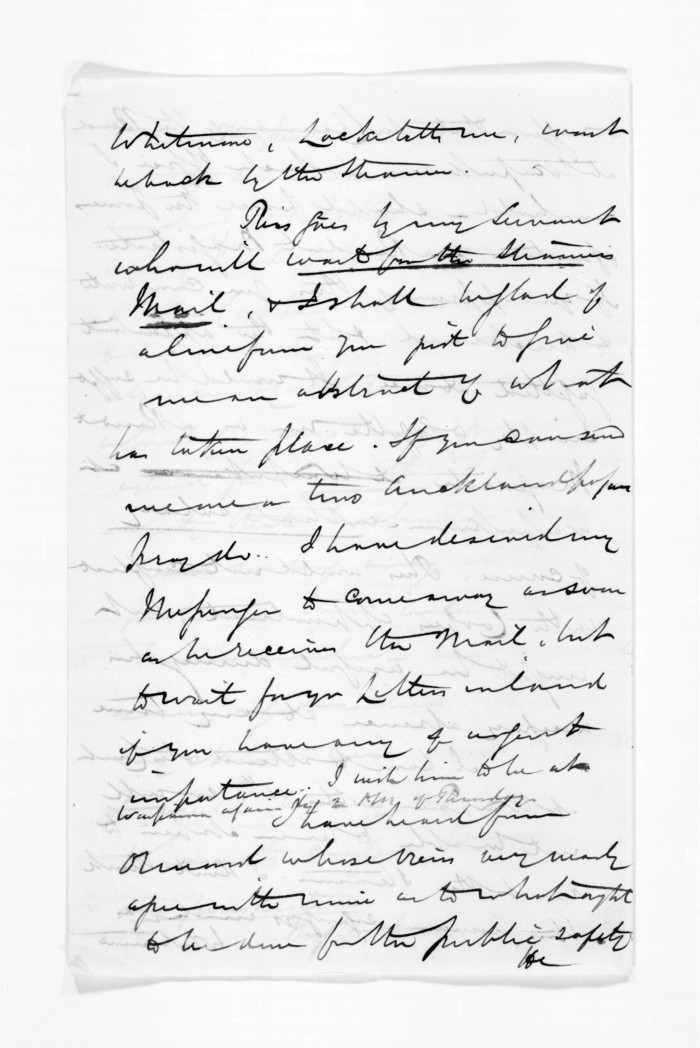 Whitmore, Locke let me, want
back by the Steamer.
This goes by my Servant
who will wait for the Steamers
Mail, & I shall be glad of
a line from you just to give
me an abstract of what
has taken place. If you can send
me one or two Auckland papers
pray do. I have desired my
Messenger to come away as soon
as he receives the Mail, but
to wait for yr Letters inland
if you have any of urgent
importance. I wish him to be at
Waipawa again by 2 of Thursday
I have heard from
Ormond whose views very nearly
agree with mine as to what ought
to be done for the public safety
He